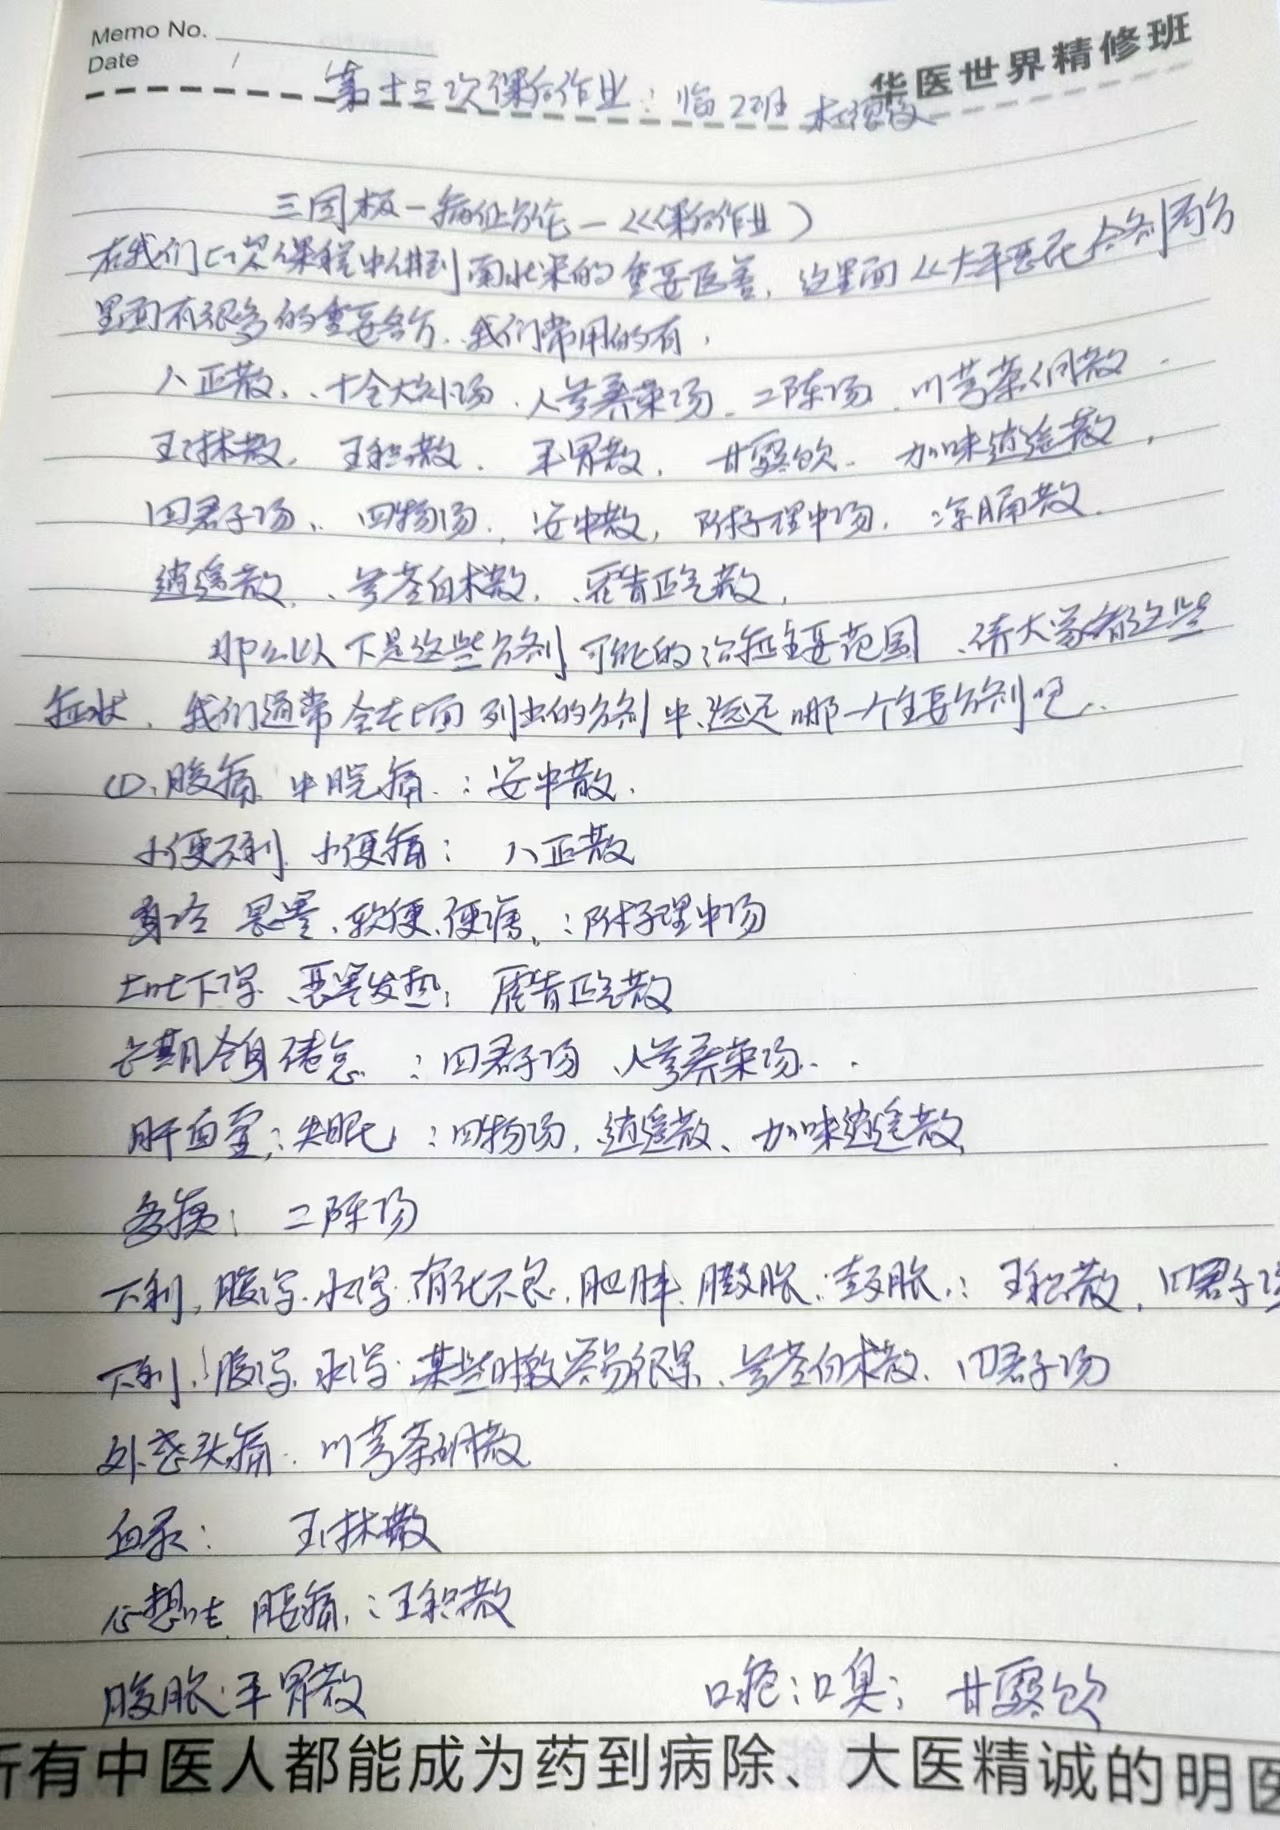 Memo No.
Date /
华医世界精修班
第十三次课后作业：临2班
三因极一病证方论 — 《课后作业》
在我们上次课程中讲到南北宋的重要医著，这里面《太平惠民合剂局方
里面有很多的重要名方、我们常用的有，
八正散、十全大补汤、人参养荣汤、二陈汤、川芎茶调散、
五淋散、五积散、平胃散、甘露饮、加味逍遥散，
四君子汤、四物汤、安中散，附子理中汤，凉膈散、
逍遥散、参苓白术散、藿香正气散，
那么以下是这些方剂可能的治症主要范围、请大家看这些
症状、我们通常会在上面列出的方剂中选定哪一个主要方剂吧..
(1)、腹痛 中脘痛：安中散、
小便不利 小便痛： 八正散
身冷 恶寒、软便、便溏、：附子理中汤
上吐下泻 恶寒发热； 藿香正气散
长期全身倦怠 ：四君子汤、人参养荣汤..
肝血虚；失眠 ：四物汤，逍遥散、加味逍遥散
多痰； 二陈汤
下利，腹泻、水泻、消化不良、肥胖、腹胀；鼓胀，：五积散，四君子汤
下利，腹泻、水泻、某些时数容易很累、参苓白术散、四君子汤
外感头痛、川芎茶调散
血尿： 五淋散
心想吐 腹痛，：五积散
腹胀：平胃散 口疮；口臭； 甘露饮
所有中医人都能成为药到病除、大医精诚的明医